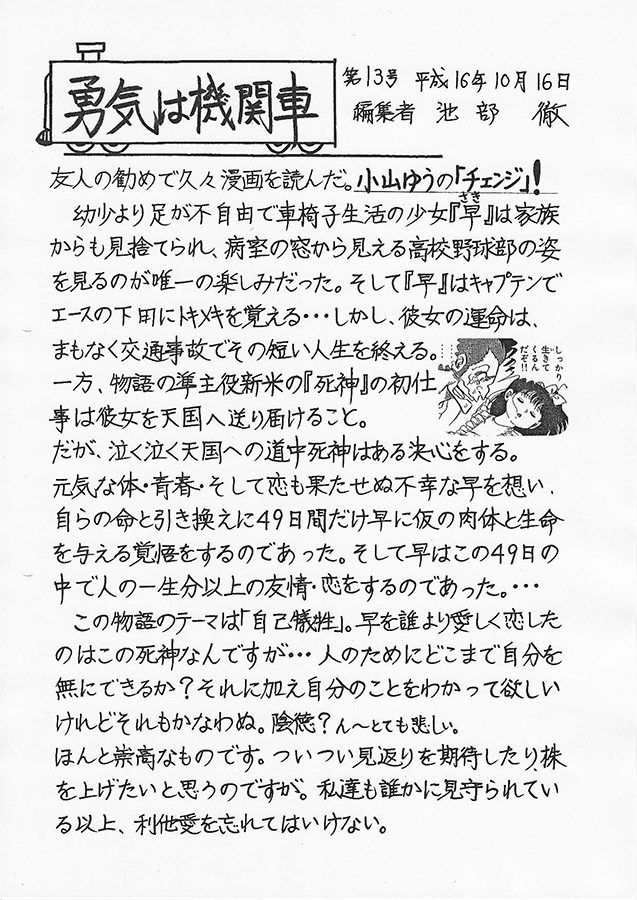 勇気は機関車
第13号 平成16年10月16日
編集者 池部 徹
友人の勧めで久々漫画を読んだ。小山ゆうの「チェンジ」!
幼少より足が不自由で車椅子生活の少女『早』は家族
さき
からも見捨てられ、病室の窓から見える高校野球部の姿
を見るのが唯一の楽しみだった。そして『早』はキャプテンで
エースの下田にトキメキを覚える・・・しかし、彼女の運命は、
まもなく交通事故でその短い人生を終える。
一方、物語の準主役新米の『死神』の初仕
事は彼女を天国へ送り届けること。
しっかり
生きて
くるん
だぞ!!
だが、泣く泣く天国への道中死神はある決心をする。
元気な体・青春・そして恋も果たせぬ不幸な早を想い、
自らの命と引き換えに49日間だけ早に仮の肉体と生命
を与える覚悟をするのであった。そして早はこの49日の
中で人の一生分以上の友情・恋をするのであった。・・・
この物語のテーマは「自己犠牲」。早を誰より愛しく恋した
のはこの死神なんですが・・・人のためにどこまで自分を
無にできるか?それに加え自分のことをわかって欲しい
けれどそれもかなわぬ。陰徳?ん〜とても悲しい。
ほんと崇高なものです。ついつい見返りを期待したり、株
を上げたいと思うのですが。私達も誰かに見守られてい
る以上、利他愛を忘れてはいけない。